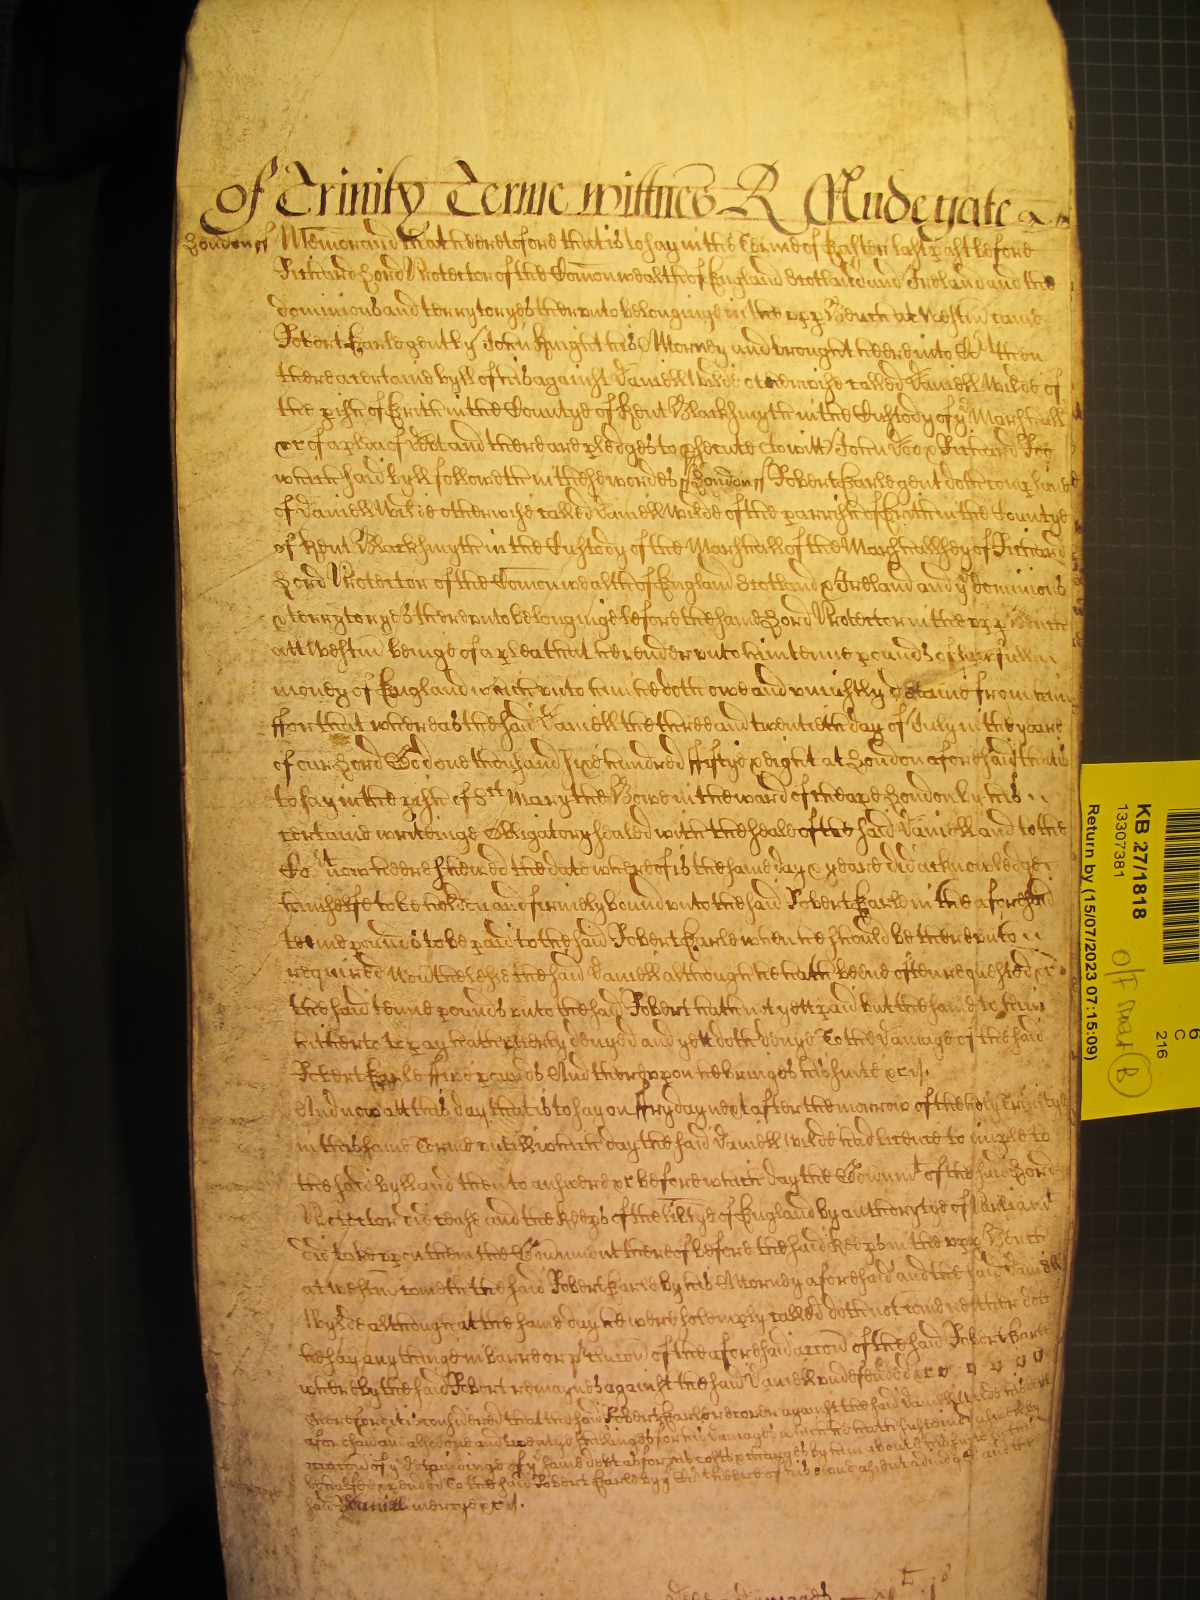 Of Trinity Terme wittnes R Nudegate
London ss Memorand that heretofore that is to say in this Terme of Easter last past before
Richard Lord Protector of the Comonwealth of England Scotland and Ireland and the
dominions and terrytoryes thereunto belonginge in the upp Bench at Westm came
Robert Earle gent by John Knight his Attorney and brought heere into Ct then
there a certaine byll of his against Daniell Wilde otherwise called Daniell Wilde of
the pish of Erith in the Countye of Kent Blacksmyth in the Custody of ye Marshall
&c of a plea of debt and there are pledges to psecute to witt John Doe & Richard Roe
which said byll followeth in these wordes ss London ss Robert Earle gent doth complaine
of Daniell Wilde otherwise called Daniell Wilde of the parrish of Erith in the Countye
of Kent Blacksmyth in the Custody of the Marshall of the Marshallsey of Richard
Lord Protector of the Comonwealth of England Scotland & Ireland and ye dominions
& terrytoryes thereunto belonginge before the same Lord Protector in the upp Bench
att Westm beinge of a plea that he render unto him tenne pounds of lawfull
money of England which unto him he doth owe and uniustly detaine from him
ffor that whereas the said Daniell the three and twentieth day of July in the yeare
of our Lord God one thousand sixe hundred fiftye & eight at London aforesaid that is
to say in the pish of St Mary the Bowe in the ward of Cheape London by his
certaine writeinge Obligatory sealed with the seale of the said Daniell and to the
Ct now heere shewed the date whereof is the same day & yeare did acknowledge
himselfe to be holden and firmely bound unto the said Robert Earle in the aforesaid
tenne pounds to be paid to the said Robert Earle when he should be thereunto
required Neverthelesse the said Daniell although he hath beene often requested &c
the said tenne pounds unto the said Robert hath not yett paid but the same to him
hitherto to pay hath utterly denyed and yett doth denye To the damage of the said
Robert Earle ffive pounds And thereupon he bringes his suite &c
And now att this day that is to say on ffryday next after the morrow of the holy Trinitye
in this same Terme untill which day the said Daniell Wilde had licence to imple to
the said byll and then to answere &c before which day the Governmt of the said Lord
Protector did cease and the Keeps of the libtye of England by authorytye of Parliamt
did take upon them the Governmt thereof before the said Keeps in the upp Bench
at Westm cometh the said Robert Earle by his Attorney aforesaid and the said Daniell
Wylde although at the same day he were solemply called doth not come neither doth
he say anythinge in barre or of the aforesaid accon of the said Robert Earle
whereby the said Robert remaynes against the said Daniell undefended &c
Therefore it is considered that the said Robert Earle recover against the said Daniell Wilde his debt
aforesaid and alsoe one and twentye shillinges for his damages which he hath susteined aswell by
occon of ye detayninge of ye same debt as for his costs & charges by him about his suite in this
behalfe expended to the said Robert Earle by ye Ct heere of his owne assent adiudged and the
said Daniell in mercye &c
KB 27/1818
13307381
Return by (15/07/2023 07:15:09)
6
C
216